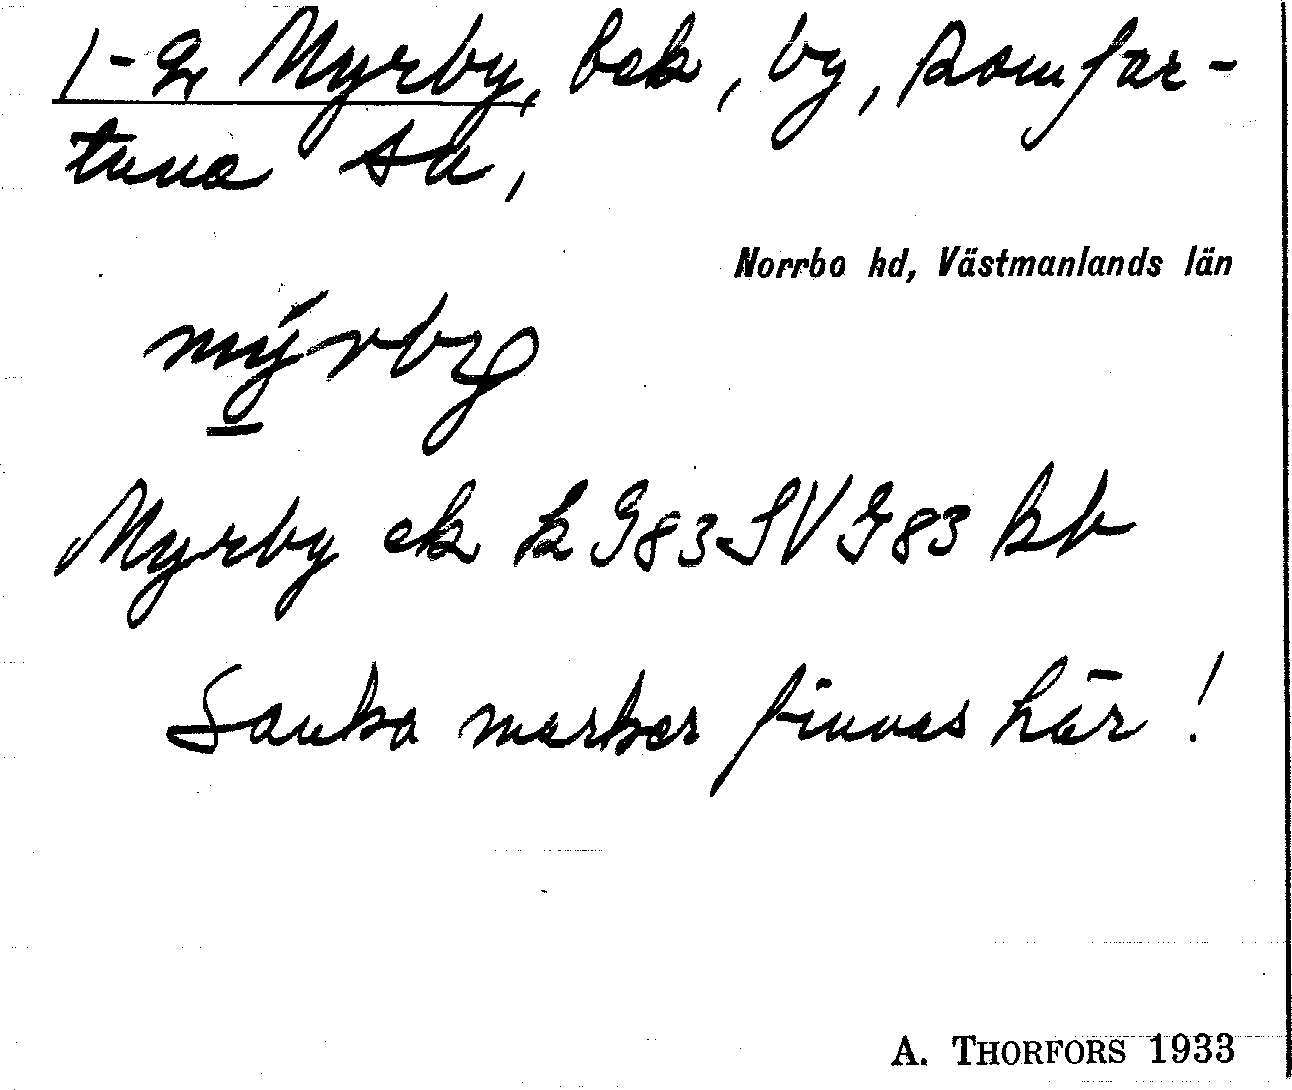 1-2 Myrby, bek, by, Romfar-
tuna sn,
Norrbo hd, Västmanlands län
mýrby
Myrby ek k G83 SV G83 kb
Sanka marker finnas här!
A. THORFORS 1933